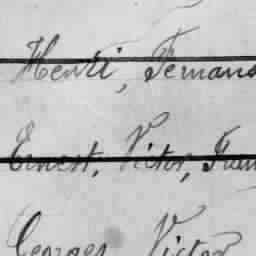 Henri, Fernand
Ernest, Victor, Fran
Georges Victor